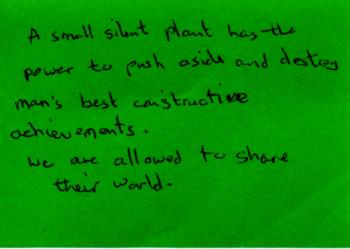 A small silent plant has the
power to push aside and destroy
man's best constructive
achievements.
we are allowed to share
their world.